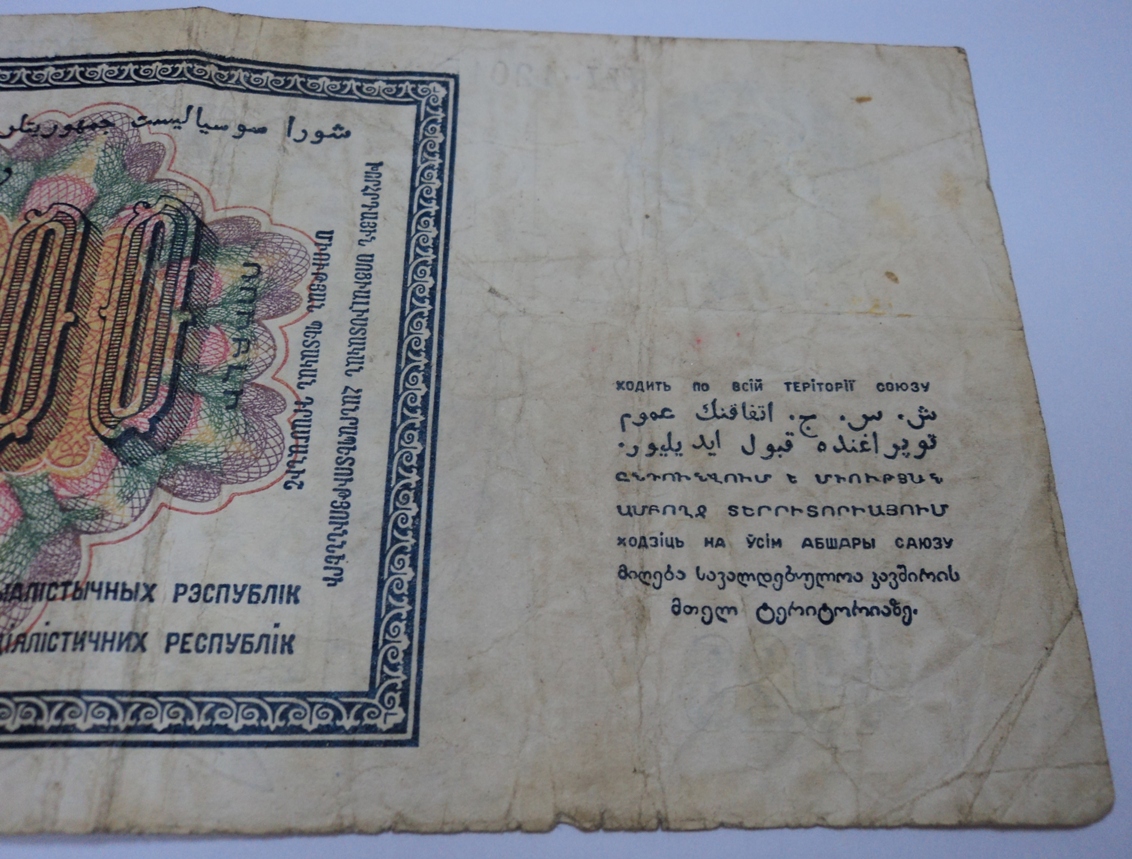 شورا سوسياليست جمهوريتلر
ՍՈՑԻԱԼԻՍՏԱԿԱՆ ՀԱՆՐԱՊԵՏՈՒԹՅՈՒՆՆԵՐԻ
ՄԻՈՒԹՅԱՆ ՊԵՏԱԿԱՆ ԴՐԱՄԱՆԻՇ
00
ІАЛІСТЫЧНЫХ РЭСПУБЛІК
ЦІАЛІСТИЧНИХ РЕСПУБЛІК
ХОДИТЬ ПО ВСІЙ ТЕРІТОРІЇ СОЮЗУ
ش. س. ج. اتفاقنك عموم
توپراغنده قبول ايديليور.
ԸՆԴՈՒՆՎՈՒՄ Է ՄԻՈՒԹՅԱՆ
ԱՄԲՈՂՋ ՏԵՐՐԻՏՈՐԻԱՅՈՒՄ
ХОДЗІЦЬ НА ЎСІМ АБШАРЫ САЮЗУ
მიღება სავალდებულოა კავშირის
მთელ ტერიტორიაზე.